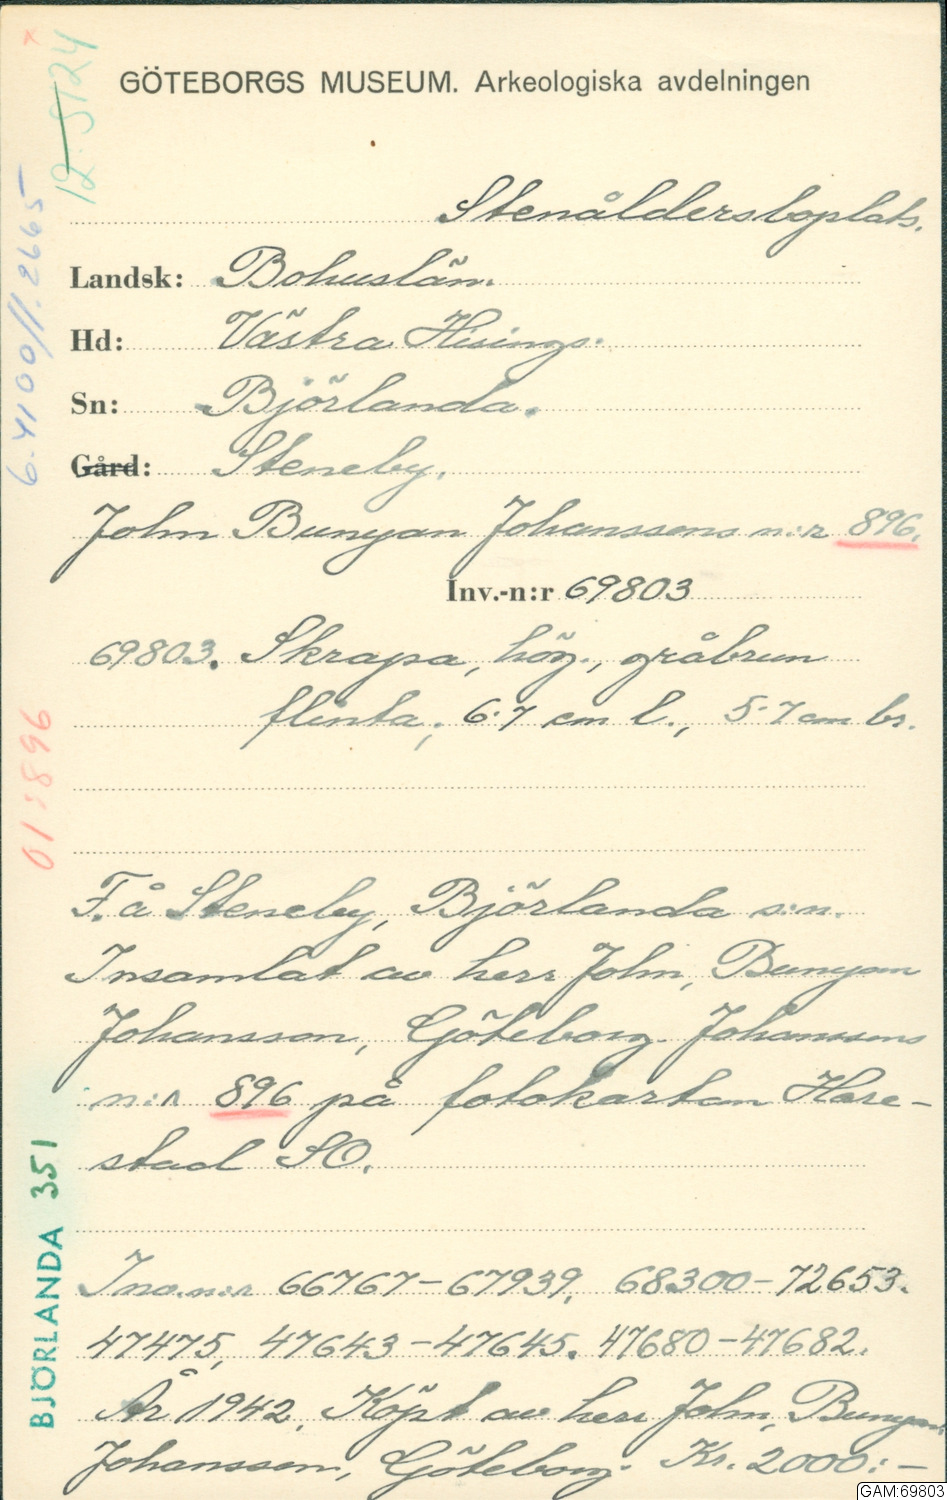 GÖTEBORGS MUSEUM. Arkeologiska avdelningen
12·5124
6.4100//.2665
Stenåldersboplats.
Landsk: Bohuslän.
Hd: Västra Hisings.
Sn: Björlanda.
Gård: Steneby.
John Bunyan Johanssons n:r 896.
Inv.-n:r 69803
69803. Skrapa, hög., gråbrun
flinta; 6·7 cm l., 5·7 cm br.
01:896
F. å Steneby, Björlanda s:n.
Insamlat av herr John, Bunyan
Johansson, Göteborg. Johanssons
n:r 896 på fotokartan Hare-
stad SO.
BJÖRLANDA 351
Inv.n:r 66767–67939, 68300–72653.
47475, 47643–47645. 47680–47682.
År 1942, Köpt av herr John, Bunyan
Johansson, Göteborg. Kr. 2000:–
GAM:69803